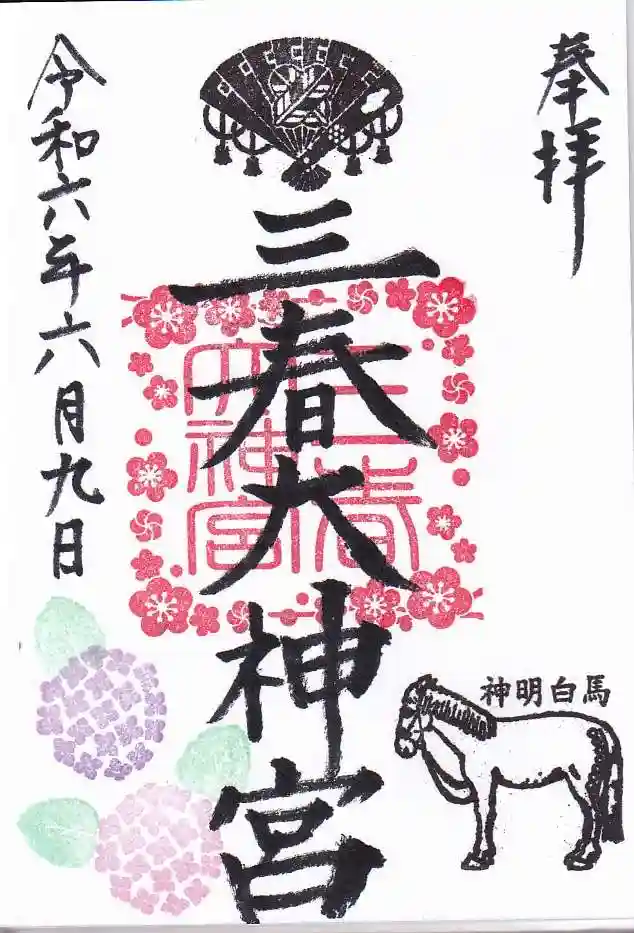 奉拝
三春大神宮
三春
大神宮
神明白馬
令和六年六月九日